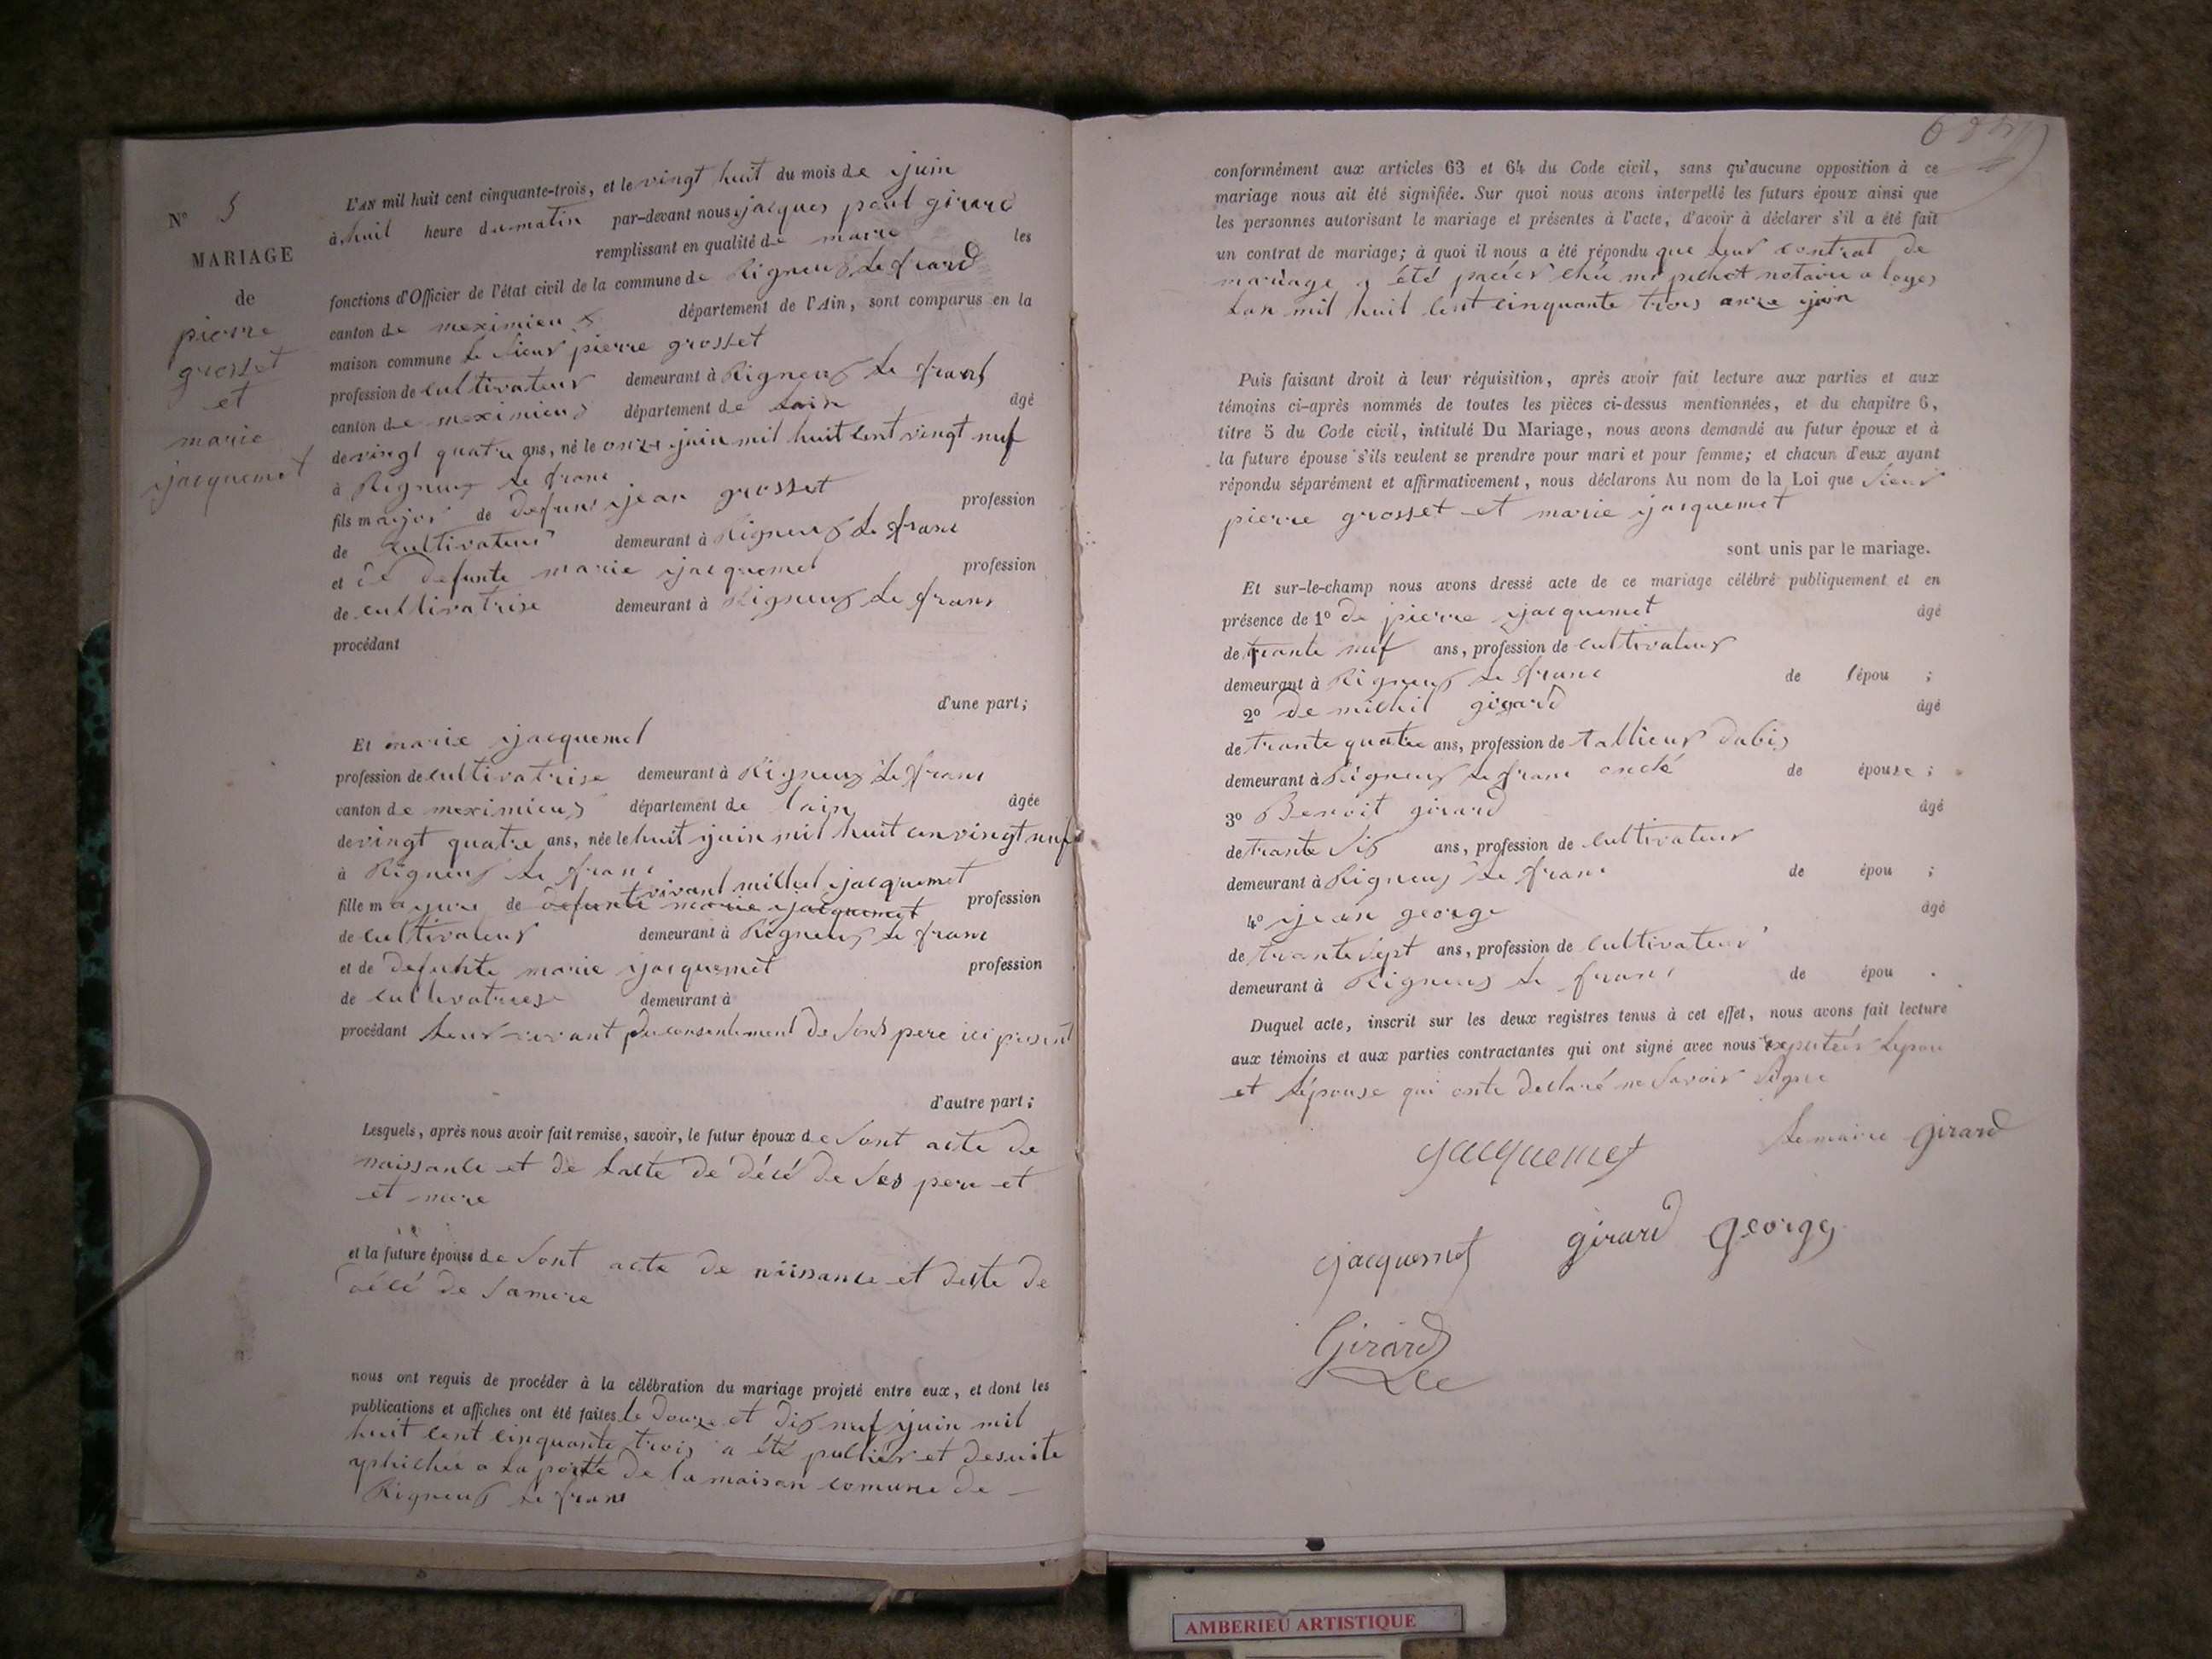 N° 5
MARIAGE
de
pierre
grosset
et
marie
jacquemet
L'AN mil huit cent cinquante-trois, et le vingt huit du mois de juin
à huit heure du matin par-devant nous jacques paul girard
remplissant en qualité de maire les
fonctions d'Officier de l'état civil de la commune de Rigneux le franc
canton de meximieux département de l'Ain, sont comparus en la
maison commune le sieur pierre grosset
profession de cultivateur demeurant à Rigneux le franc
canton de meximieux département de lain âgé
de vingt quatre ans, né le onze juin mil huit cent vingt nuf
à Rigneux le franc
fils major de defunt jean grosset profession
de cultivateur demeurant à Rigneux le franc
et de defunte marie jacquemet profession
de cultivatrise demeurant à Rigneux le franc
procédant
d'une part;
Et marie jacquemet
profession de cultivatrise demeurant à Rigneux le franc
canton de meximieux département de lain âgée
de vingt quatre ans, née le huit juin mil huit cen vingt nuf
à Rigneux le franc
vivant michel jacquemet
fille majure de defunte marie jacquemet profession
de cultivateur demeurant à Rigneux le franc
et de defunte marie jacquemet profession
de cultivatrise demeurant à
procédant leur vivant du consentement de sont pere ici present
d'autre part;
Lesquels, après nous avoir fait remise, savoir, le futur époux de sont acte de
naissance et de lacte de décé de ses pere et
et mere
et la future épouse de sont acte de naissance et delte de
décé de sa mere
nous ont requis de procéder à la célébration du mariage projeté entre eux, et dont les
publications et affiches ont été faites le douze et dix nuf juin mil
huit cent cinquante trois a été publier et desuite
aphichée a la porte de la maison comune de
Rigneux le franc
conformément aux articles 63 et 64 du Code civil, sans qu'aucune opposition à ce
mariage nous ait été signifiée. Sur quoi nous avons interpellé les futurs époux ainsi que
les personnes autorisant le mariage et présentes à l'acte, d'avoir à déclarer s'il a été fait
un contrat de mariage; à quoi il nous a été répondu que leur contrat de
mariage a été passer chée me notaire a loyes
lan mil huit cent cinquante trois onze juin
Puis faisant droit à leur réquisition, après avoir fait lecture aux parties et aux
témoins ci-après nommés de toutes les pièces ci-dessus mentionnées, et du chapitre 6,
titre 5 du Code civil, intitulé Du Mariage, nous avons demandé au futur époux et à
la future épouse s'ils veulent se prendre pour mari et pour femme; et chacun d'eux ayant
répondu séparément et affirmativement, nous déclarons Au nom de la Loi que sieur
pierre grosset et marie jacquemet
sont unis par le mariage.
Et sur-le-champ nous avons dressé acte de ce mariage célébré publiquement et en
présence de 1° de pierre jacquemet âgé
de trante nuf ans, profession de cultivateur
demeurant à Rigneux le franc de l'épou ;
2° de michil girard âgé
de trante quatre ans, profession de tallieur dabis
demeurant à Rigneux le franc oncle de épouse ;
3° Benoit girard âgé
de trante six ans, profession de cultivateur
demeurant à Rigneux le franc de épou ;
4° jean george âgé
de trante sept ans, profession de cultivateur
demeurant à Rigneux le franc de épou .
Duquel acte, inscrit sur les deux registres tenus à cet effet, nous avons fait lecture
aux témoins et aux parties contractantes qui ont signé avec nous exceptées lépou
et lépouse qui onte declaré ne savoir signe
jacquemet le maire girard
jacquemet girard george
Girard
AMBERIEU ARTISTIQUE